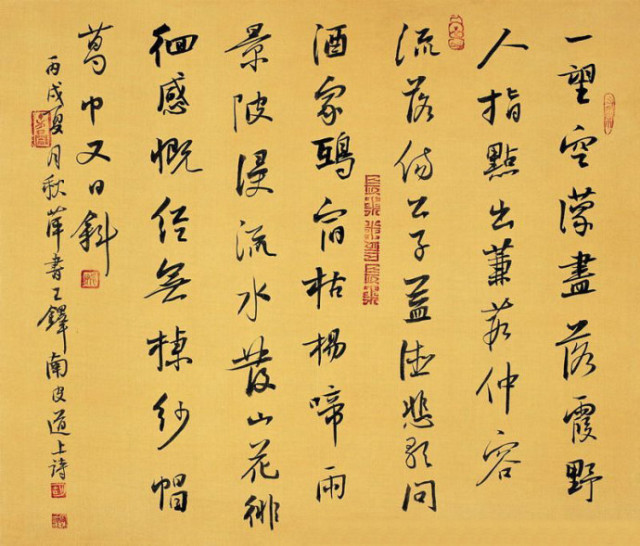 一望空濛盡落霞野
人指點出蒹葭仲容
流落傷公子益德悲歌問
酒家鵶宿枯楊啼雨
景陂浸流水發山花徘
徊感慨經無棣紗帽
葛巾又日斜
丙戌夏月秋萍書王鐸南皮道上詩